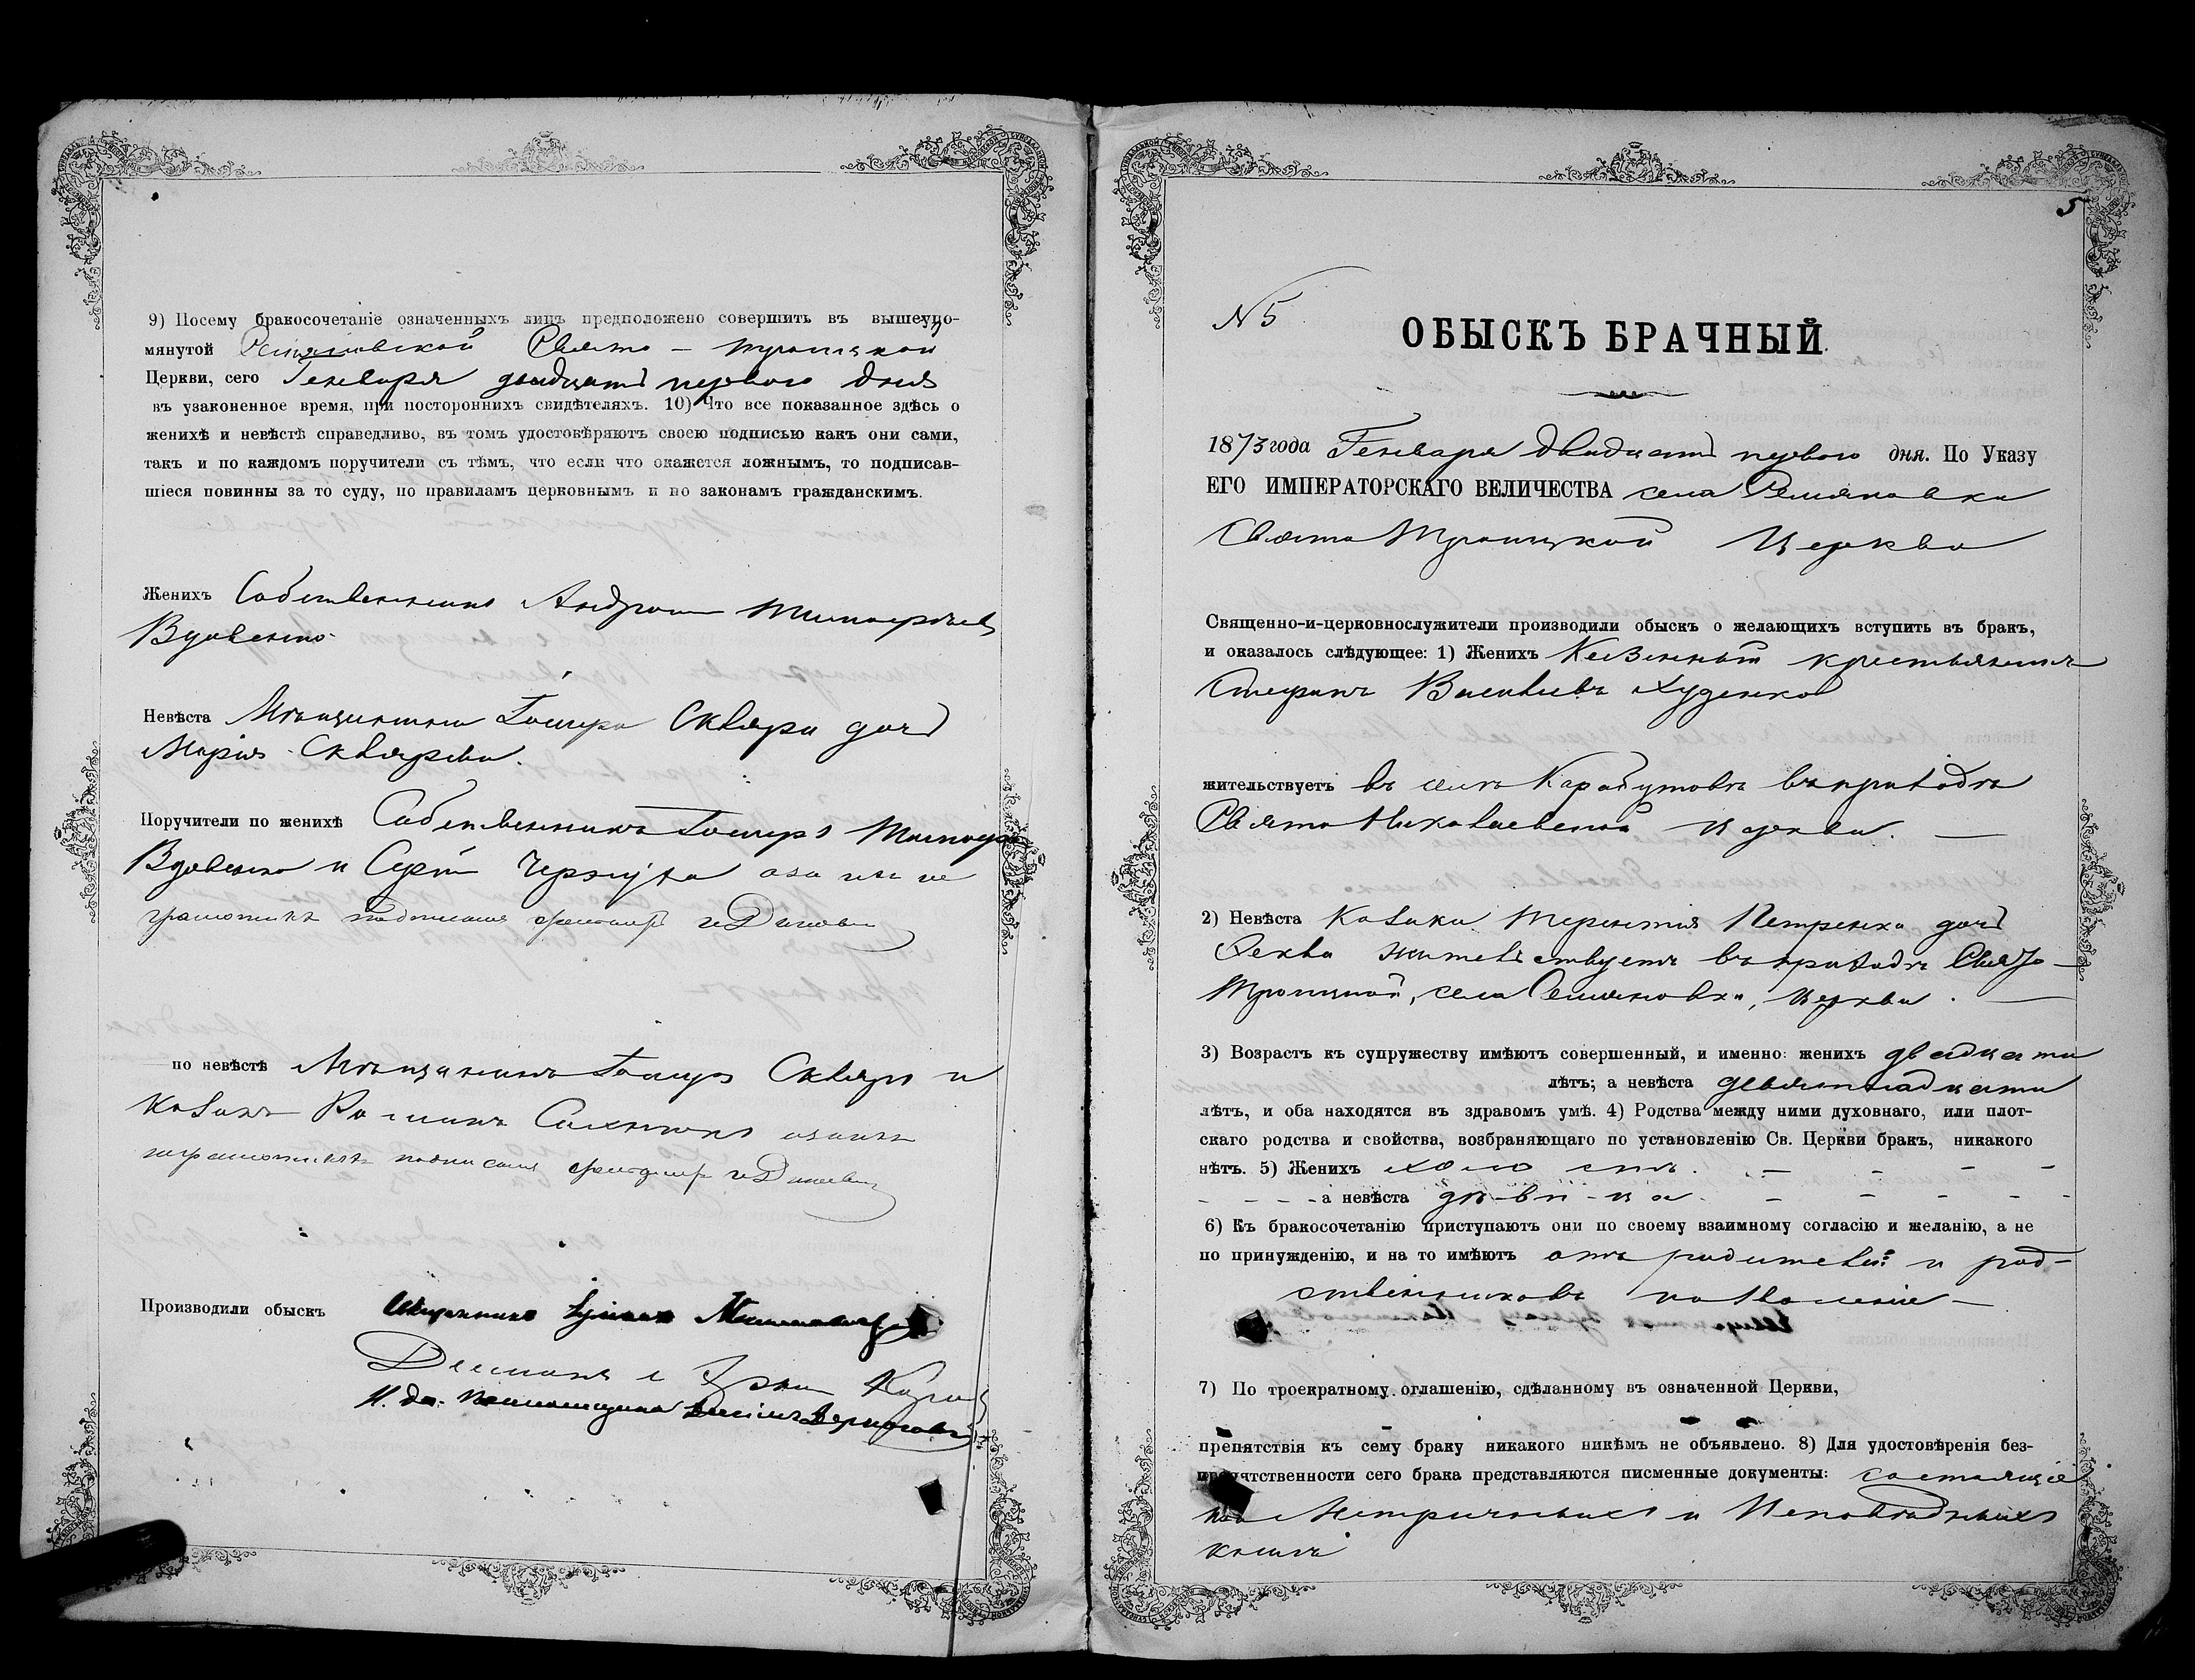 9) Посему бракосочетаніе означенныхъ лицъ предположено совершить въ вышеупо-
мянутой Свято - Троицкой
Церкви, сего Генваря двадцать перваго дня
въ узаконенное время, при постороннихъ свидѣтеляхъ. 10) Что все показанное здѣсь о
женихѣ и невѣстѣ справедливо, въ томъ удостовѣряютъ своею подписью какъ они сами,
такъ и по каждомъ поручители съ тѣмъ, что если что окажется ложнымъ, то подписав-
шіеся повинны за то суду, по правиламъ церковнымъ и по законамъ гражданскимъ.
Женихъ Собственникъ Андрей
Вдовенко
Невѣста Мѣщанина Скляра дочь
Марія Склярева.
Поручители по женихѣ Собственникъ
Вдовенко и
по невѣстѣ Мѣщанинъ Скляръ и
козакъ Романъ
Производили обыскъ Священникъ
И. до. Псаломщика
5
N 5
ОБЫСКЪ БРАЧНЫЙ.
1873 года Генваря двадцать перваго дня. По Указу
ЕГО ИМПЕРАТОРСКАГО ВЕЛИЧЕСТВА села Семяновки
Свято Троицкой Церкви
Священно-и-церковнослужители производили обыскъ о желающихъ вступить въ бракъ,
и оказалось слѣдующее: 1) Женихъ Казенный крестьянинъ
Стефанъ Васильевъ Худенко
жительствуетъ въ селѣ Карабутовѣ въ приходѣ
Свято Николаевской церкви.
2) Невѣста Козака Терентія Петренка дочь
Фекла жительствуетъ въ приходѣ Свято-
Троицкой, села Семяновки, церкви.
3) Возрастъ къ супружеству имѣютъ совершенный, и именно: женихъ двадцати
лѣтъ; а невѣста девятнадцати
лѣтъ, и оба находятся въ здравомъ умѣ. 4) Родства между ними духовнаго, или плот-
скаго родства и свойства, возбраняющаго по установленію Св. Церкви бракъ, никакого
нѣтъ. 5) Женихъ холостъ. - - - -
- - - - а невѣста дѣвица. - - - - -
6) Къ бракосочетанію приступаютъ они по своему взаимному согласію и желанію, а не
по принужденію, и на то имѣютъ отъ родителей и род-
ственниковъ позволеніе -
7) По троекратному оглашенію, сдѣланному въ означенной Церкви,
препятствія къ сему браку никакого никѣмъ не объявлено. 8) Для удостовѣренія без-
препятственности сего брака представляются писменные документы: состоящіе
изъ Метричныхъ и Исповѣдныхъ
книгъ